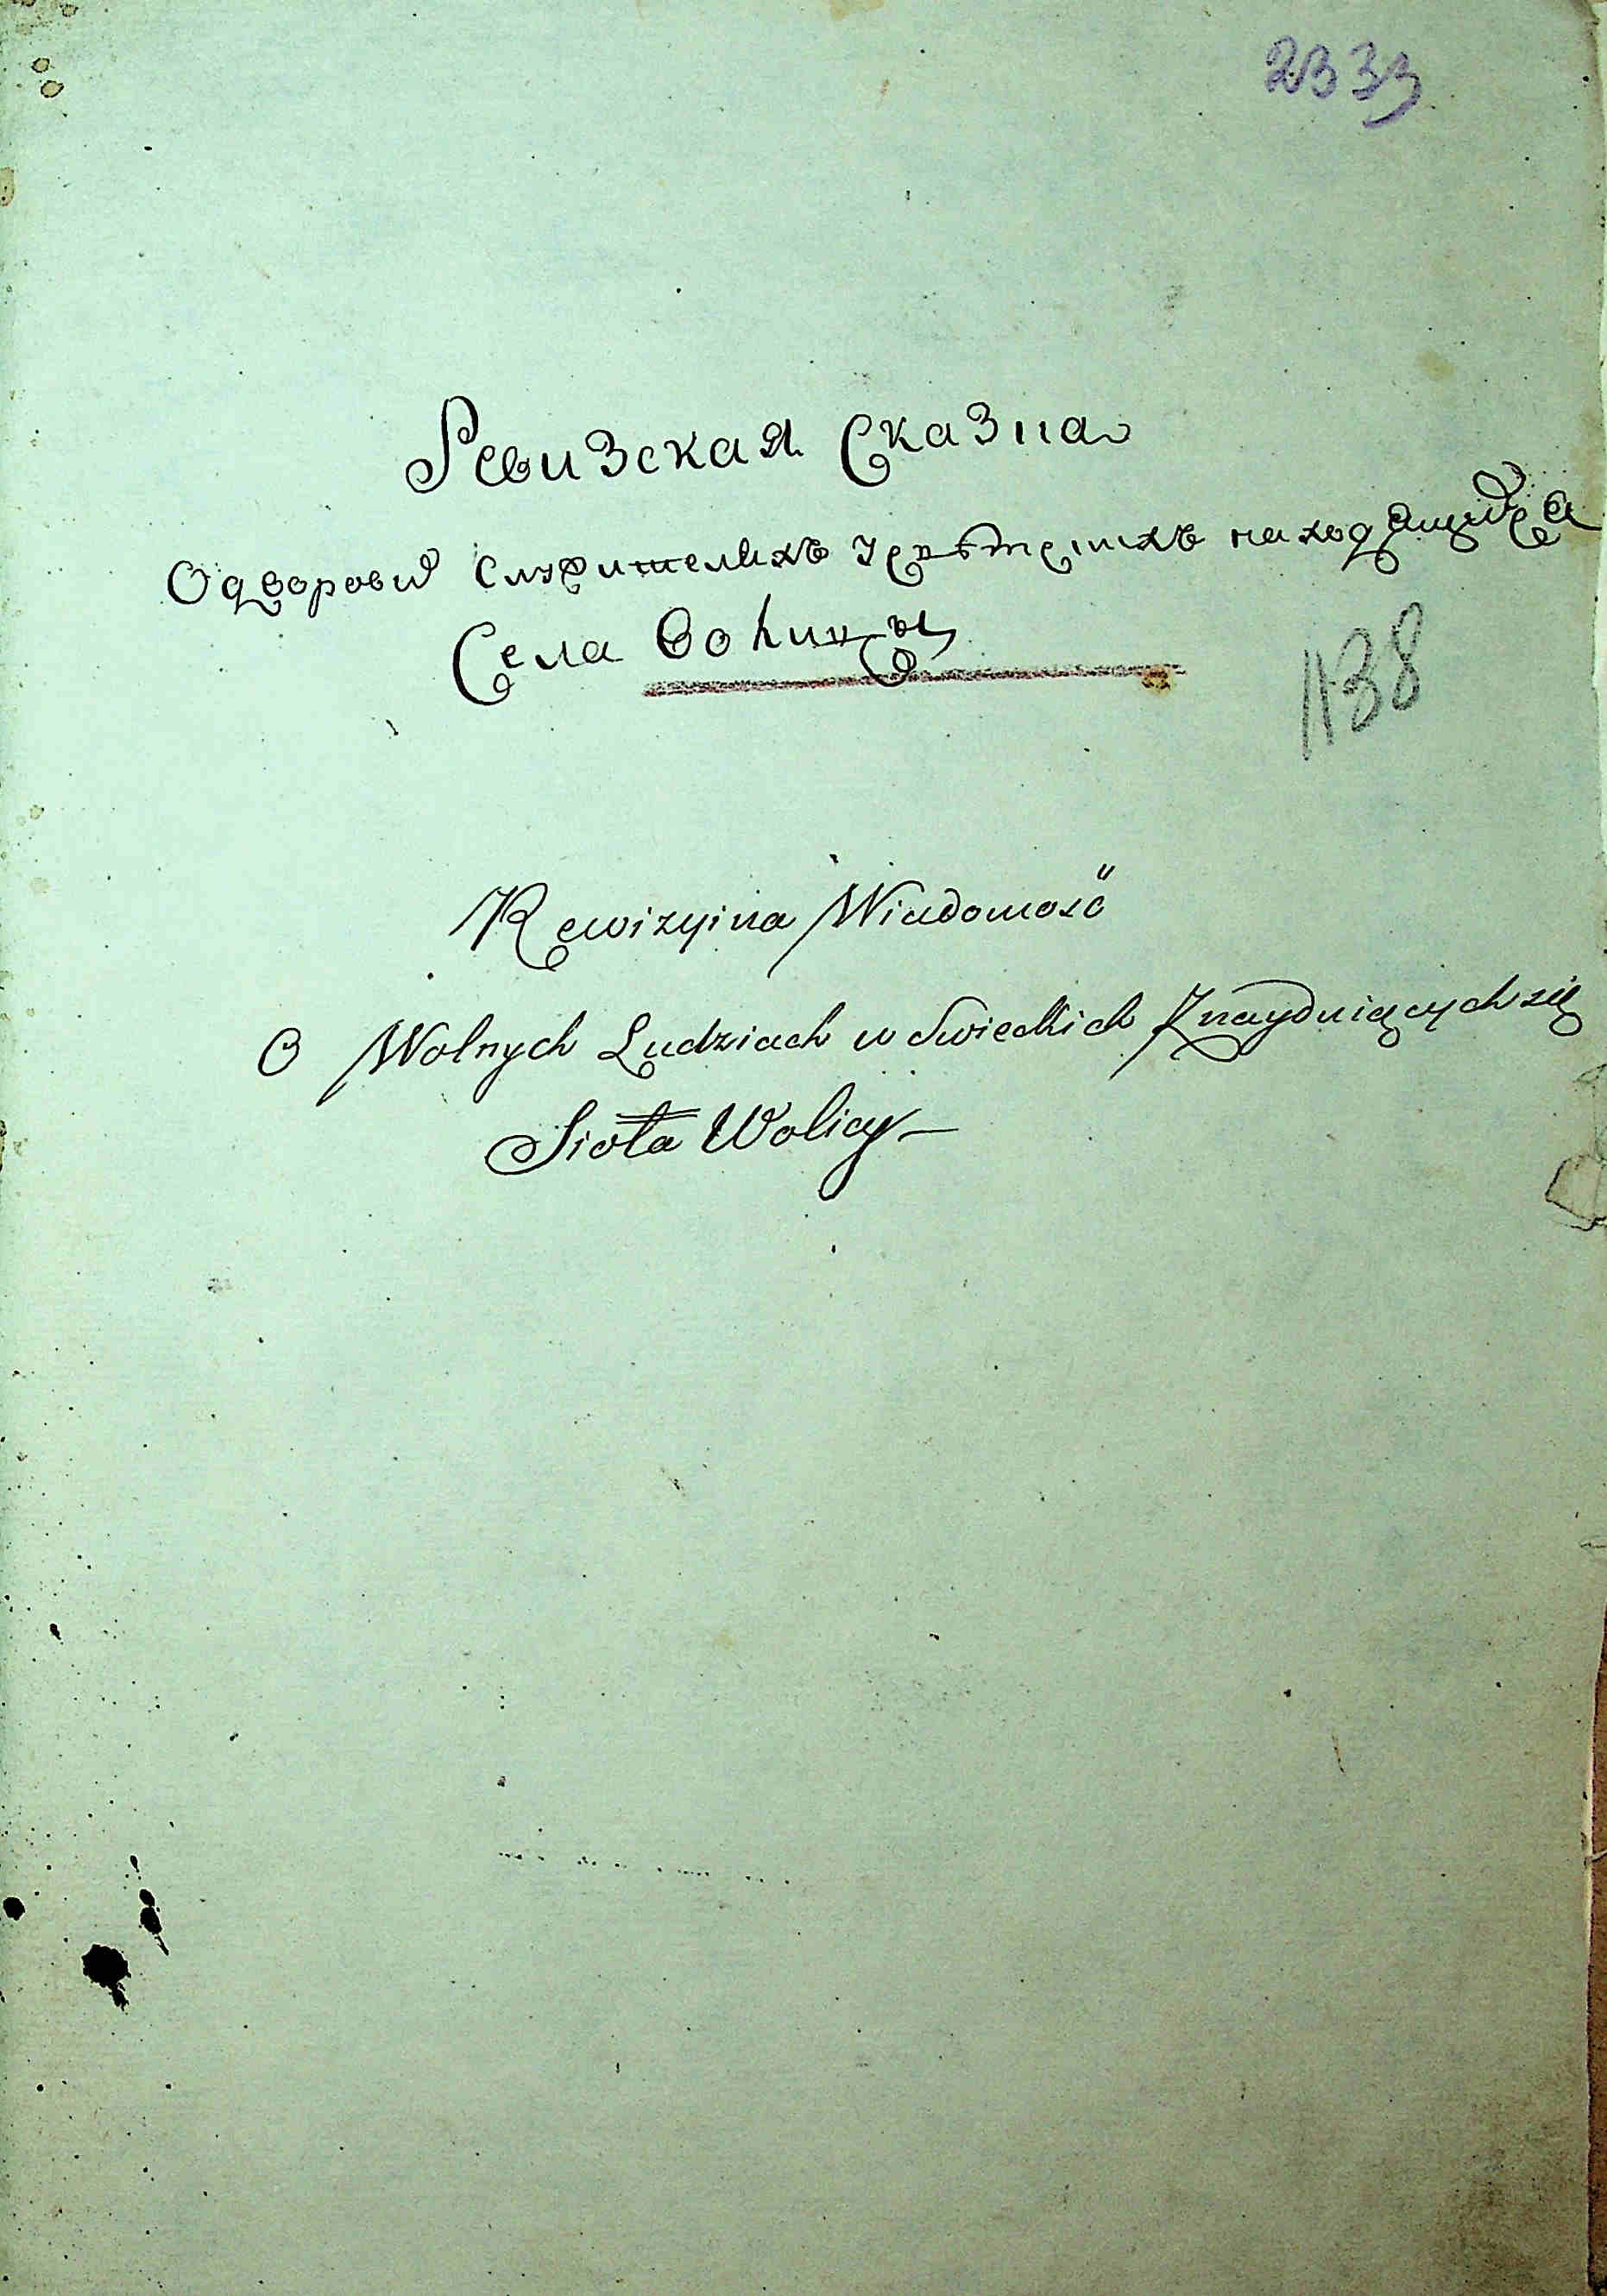 2333
Ревизская Сказка
О дворовых служителях находящихся
Села Волицы
1138
Rewizyina Wiadomość
O Wolnych Ludziach w Swieckich Znayduiących się
Sioła Wolicy